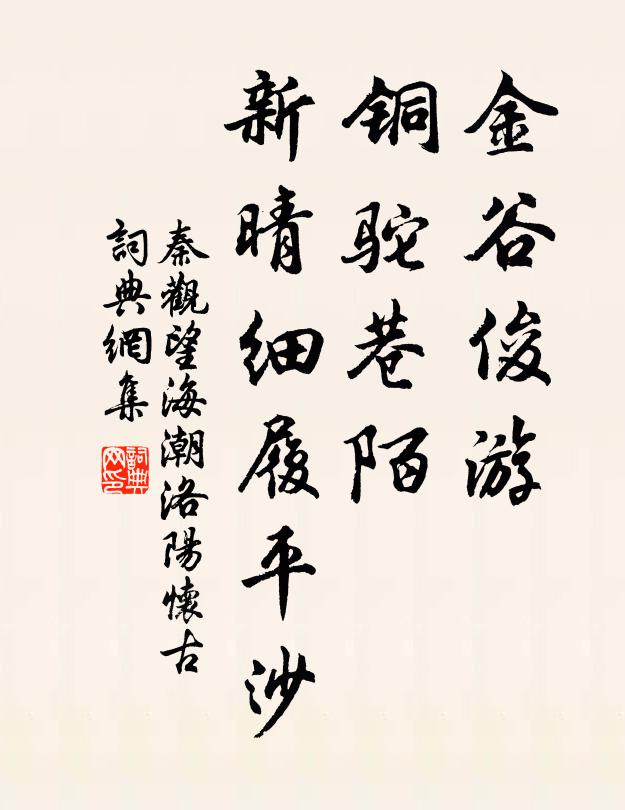 金谷俊游
铜驼巷陌
新晴细履平沙
秦觀望海潮洛陽懷古
詞典網集
詞典网印